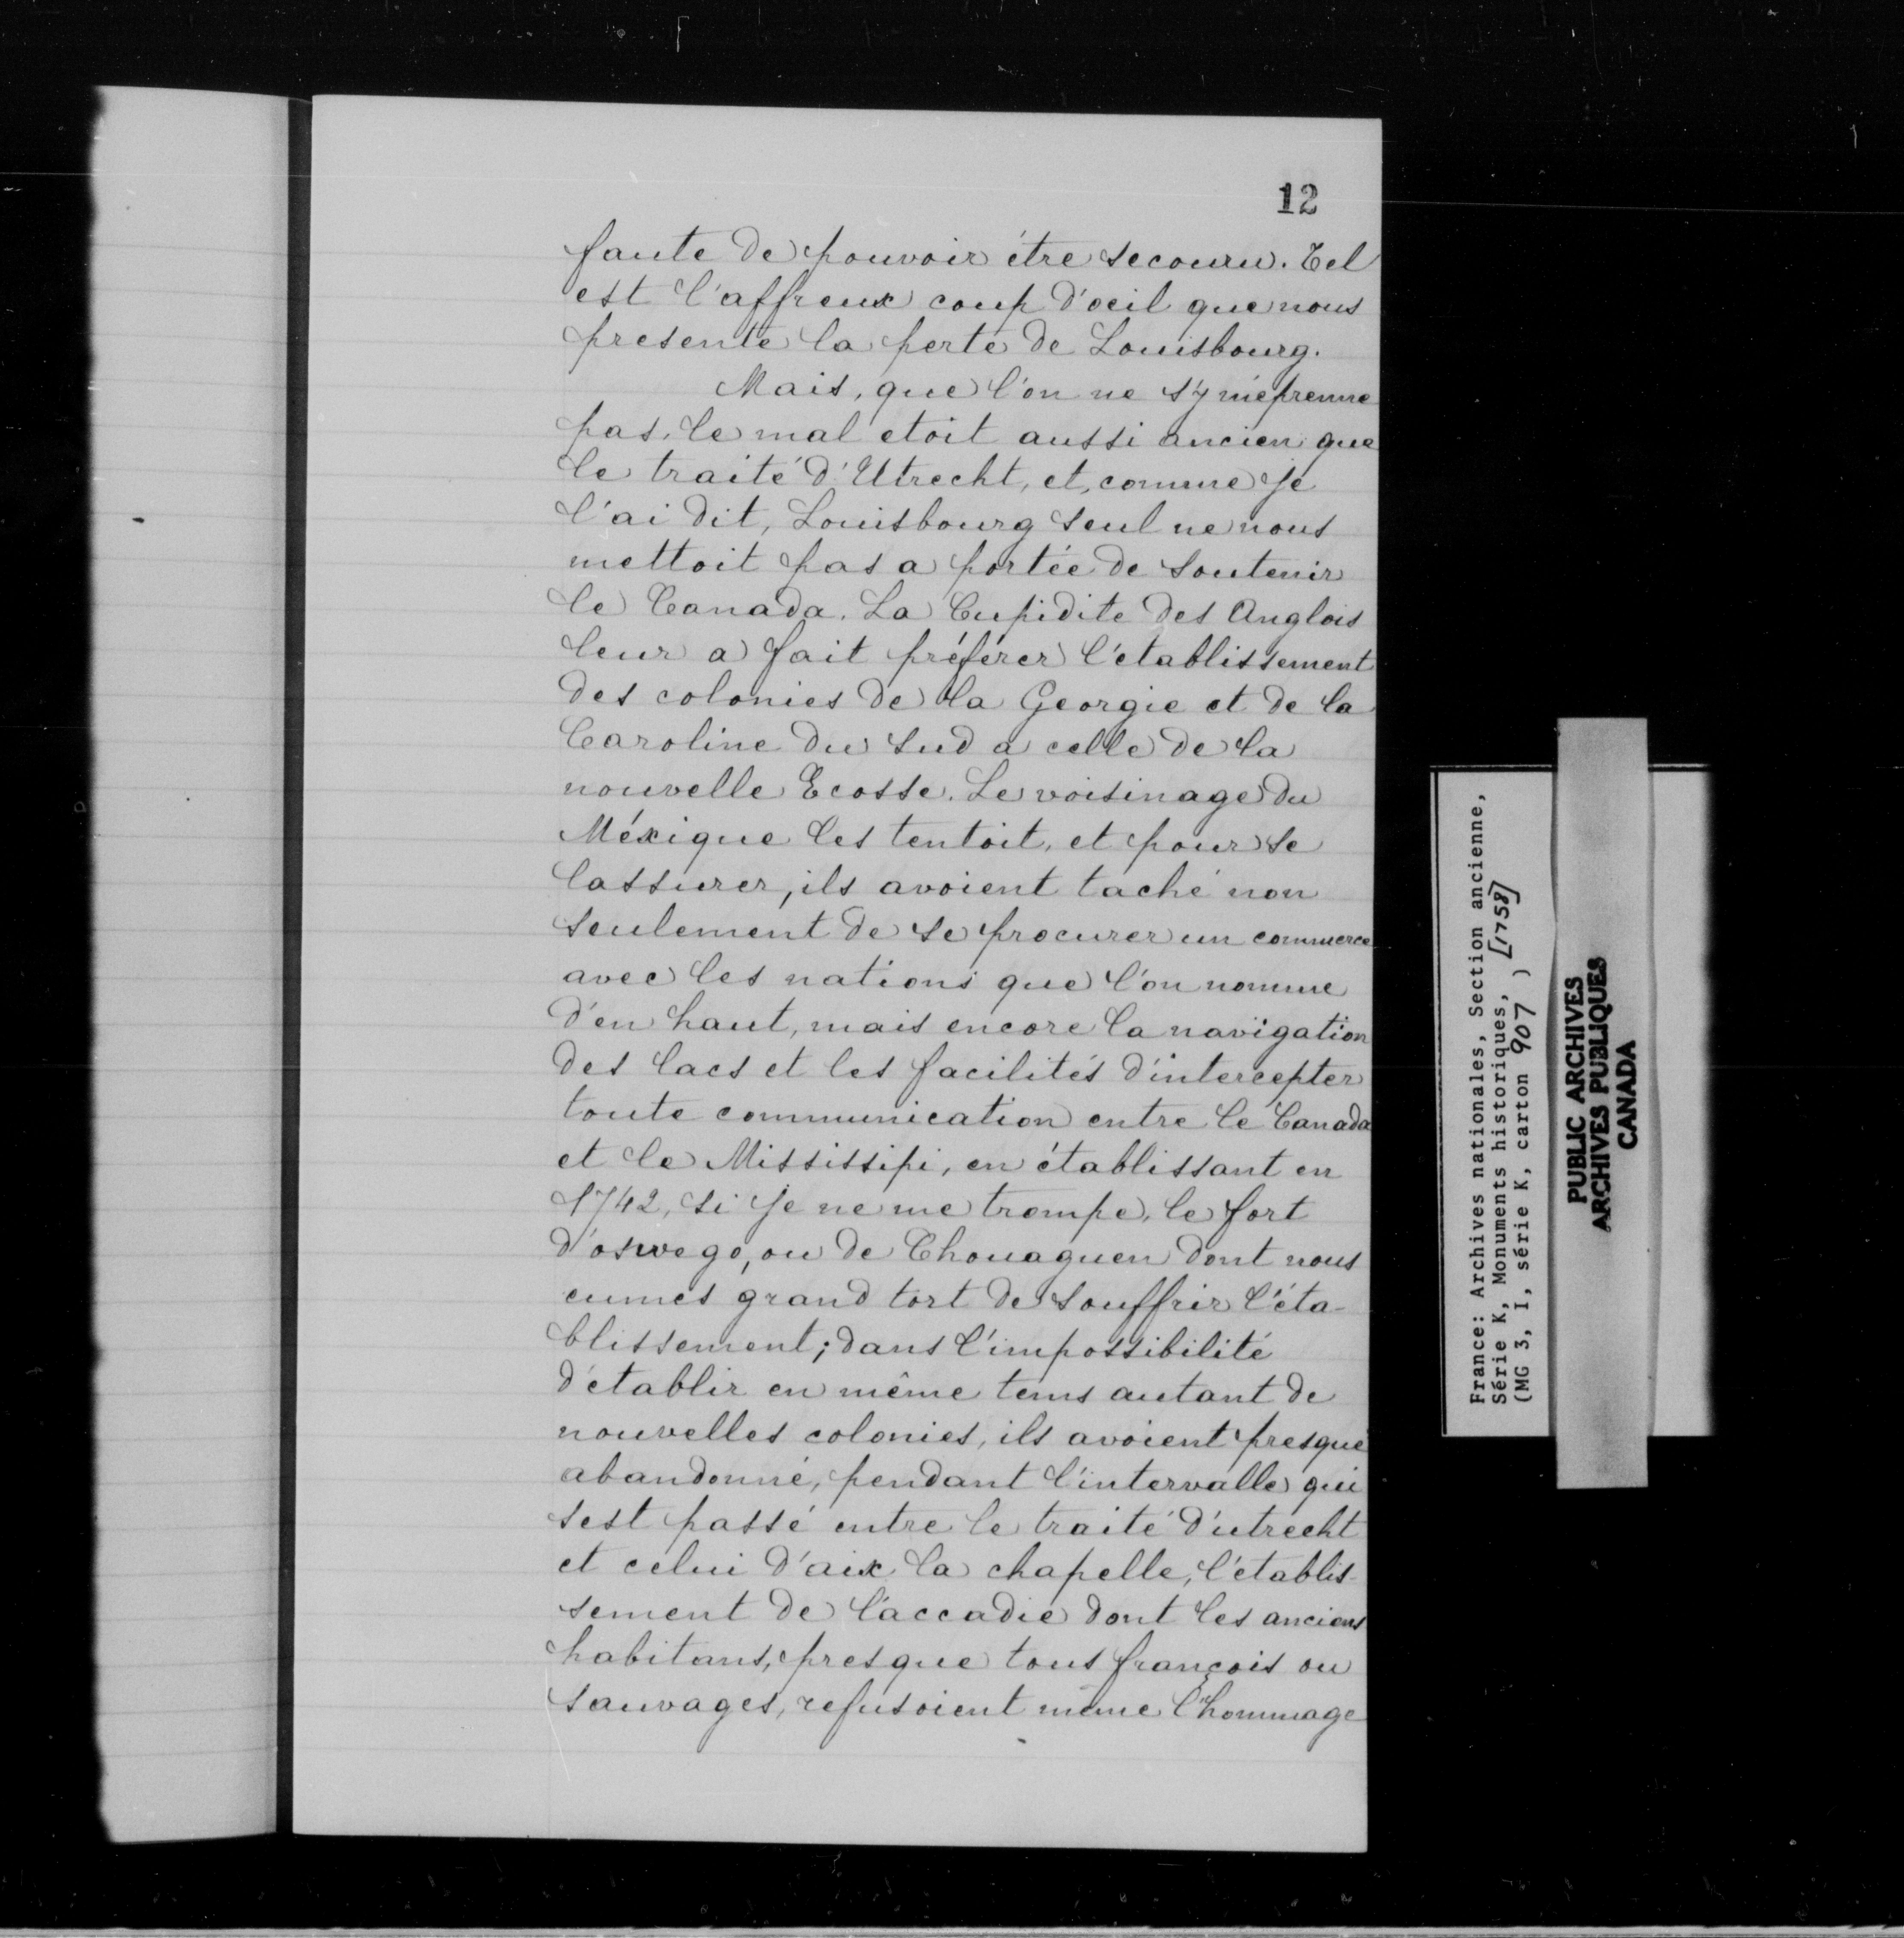 12
faute de pouvoir être secouru. Tel
est l'affreux coup d'oeil que nous
presente la perte de Louisbourg.
Mais, que l'on ne s'y méprenne
pas, le mal etoit aussi ancien que
le traité d'Utrecht, et, comme je
l'ai dit, Louisbourg seul ne nous
mettoit pas a portée de soutenir
le Canada. La Cupidite des Anglois
leur a fait préférer l'etablissement
des colonies de la Georgie et de la
Caroline du sud a celle de la
nouvelle Ecosse. Le voisinage du
Méxique les tentoit, et pour se
lassurer, ils avoient taché non
seulement de se procurer un commerce
avec les nations que l'on nomme
d'en haut, mais encore la navigation
des lacs et les facilités d'intercepter
toute communication entre le Canada
et le Missisipi, en établissant en
1742, si je ne me trompe, le fort
d'oswego, ou de Chouaguen dont nous
eumes grand tort de souffrir l'éta-
blissement; dans l'impossibilité
d'etablir en même tems autant de
nouvelles colonies, ils avoient presque
abandonné, pendant l'intervalle qui
sest passé entre le traité d'utrecht
et celui d'aix la chapelle, l'établis-
sement de l'accadie dont les anciens
habitans, presque tous françois ou
sauvages, refusoient même l'hommage
France: Archives nationales, Section ancienne,
Série K, Monuments historiques, [1758]
(MG 3, I, série K, carton 907 )
PUBLIC ARCHIVES
ARCHIVES PUBLIQUES
CANADA